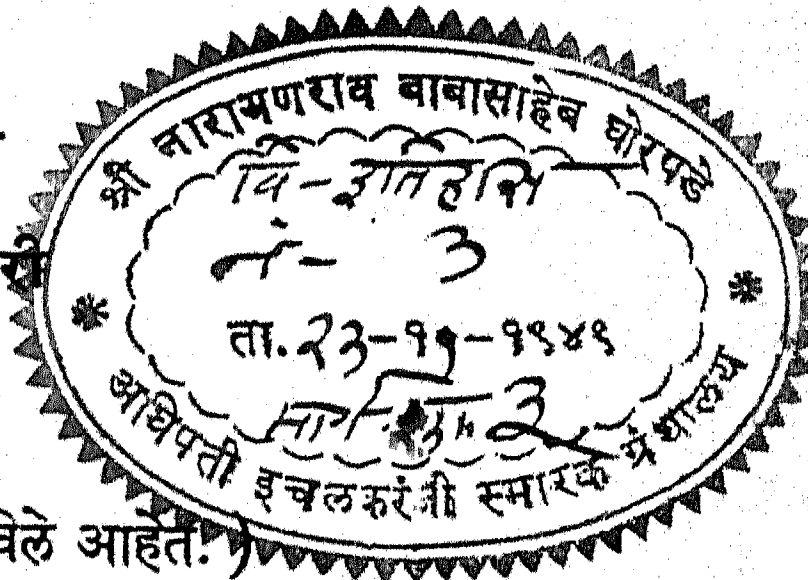 श्री नारायणराव बाबासाहेब घोरपडे
वि - इतिहास
नं - 3
ता. २३-११-१९४९
अधिपती इचलकरंजी स्मारक ग्रंथालय
विले आहेत. )